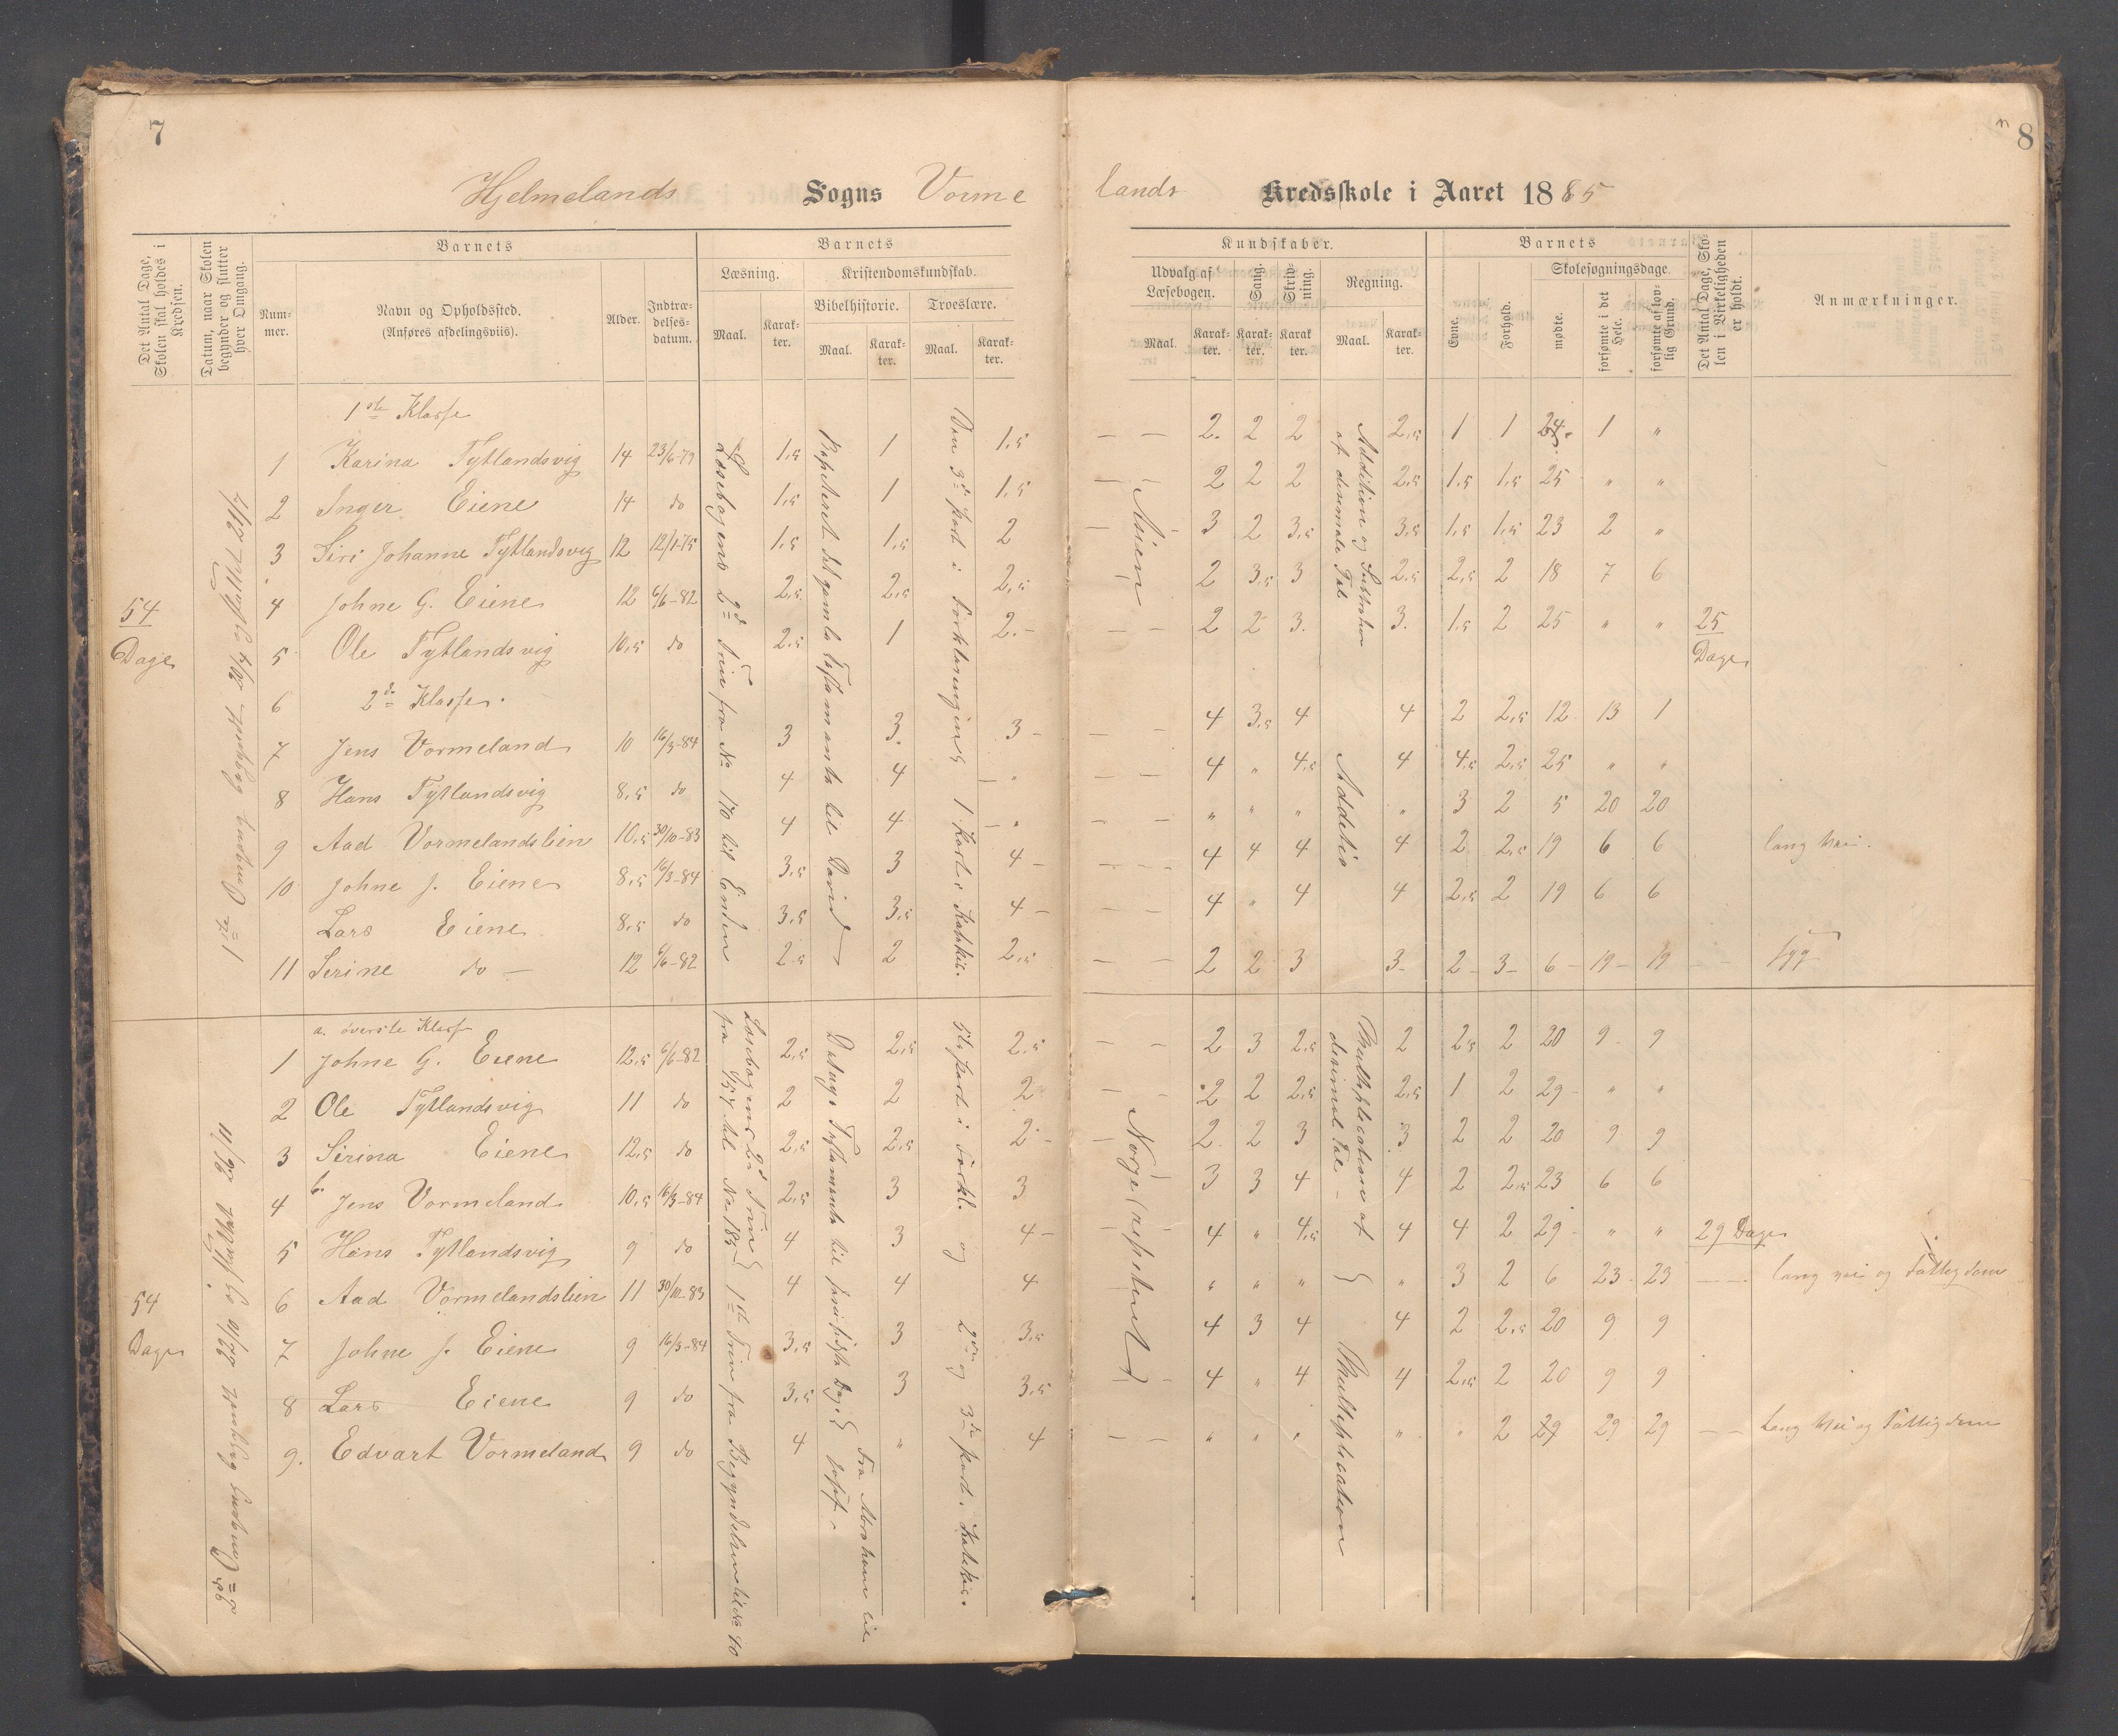 7
8
Hjelmelands Sogns Vorme lands Kredsskole i Aaret 1885
Det Antal Dage, Skolen skal holdes i Kredsen.
Datum, naar Skolen begynder og slutter hver Omgang.
Barnets
Nummer.
Navn og Opholdssted.
(Anføres afdelingsviis).
Alder.
Indtrædelsesdatum.
Barnets
Læsning.
Maal.
Karakter.
Kristendomskundskab.
Bibelhistorie.
Maal.
Karakter.
Troeslære.
Maal.
Karakter.
Kundskaber.
Udvalg af Læsebogen.
Maal.
Karakter.
Sang.
Karakter.
Skrivning.
Karakter
Regning.
Maal.
Karakter.
Barnets
Evne.
Forhold.
Skolesøgningsdage.
mødte.
forsømte i det Hele.
forsømte af lovlig Grund.
Det Antal Dage, Skolen i Virkeligheden er holdt.
Anmærkninger.
1ste Klasse
1 Karina Tytlandsvig 14 23/6-79 1,5 1 1,5 — — 2. 2 2 2,5 1 1 24 1 "
2 Inger Eiene 14 do 1,5 1 1,5 — — 2 2 2 2,5 1,5 1,5 25 " "
3 Siri Johanne Tytlandsvig 12 12/1-75 1,5 1,5 2 — 3 2 3,5 3,5 1,5 1,5 23 2 "
4 Johne G. Eiene 12 6/6-82 2,5 2,5 2,5 2 3,5 3 2,5 2,5 2 18 7 6
5 Ole Tytlandsvig 10,5 do 2,5 1 2.- — — 2 2 3. 3. 1,5 2 25 " " 25 Dage
54 Dage
6 2de Klasse.
7 Jens Vormeland 10 16/3-84 3 3. 3 - — — 4 3,5 4 4 2 2,5 12 13 1
8 Hans Tytlandsvig 8,5 do 4 4 — " — — 4 " 4,5 4 4,5 2,5 25 " "
9 Aad Vormelandslien 10,5 30/10-83 4 4 — " — — " " " " 3 2 5 20 20
10 Johne J. Eiene 8,5 16/3-84 3,5 3 4 - — — 4 4 4 4 2 2,5 19 6 6 lang Vei.
Lars Eiene 8,5 do 3,5 3,5 4 - — — 4 " 4 4 2,5 2 19 6 6
11 Serine do — 12 6/6-82 2,5 2 2,5 — — 2 2 3 3- 2- 3- 6- 19- 19 syg
Læsebogens 2d Trin fra No 170 til Enden
Repeteret det gamla Testamente til David
Den 3d Part i Forklaringen 1 Part i Katekis.
Asien
Addition og Subtraktion af desimale Tal
Addition
1ste Omgang begyndt 20/4 og sluttet 21/7
a. øverste Klasse
1 Johne G. Eiene 12,5 6/6-82 2,5 2,5 2,5 — — 2 3 2,5 2 2,5 2 20 9 9
2 Ole Tytlandsvig 11 do 2 2 2 — 2 2 2,5 2,5 1 2 29- " "
3 Serina Eiene 12,5 do 2,5 2,5 2- — 2. 2 3 3 2 2 20 9 9
4 b. Jens Vormeland 10,5 16/3-84 2,5 3 3 3 3 4 4 2 2,5 23 6 6
5 Hans Tytlandsvig 9 do 4 3 4 - — — 4 " 4,5 4 4 2 29- " " 29 Dage
6 Aad Vormelandslien 11 30/10-83 4 4 4 " " " " 3 2 6 23 23 — — lang vei og Fattigdom
7 Johne J. Eiene 9 16/3-84 3,5 3 3,5 4 3 4 4 2 2,5 20 9 9
8 Lars Eiene 9 do 3,5 3 3,5 — 4 " 4 4 2,5 2 20 9 9
9. Edvart Vormeland 9 do 4 " 4 — — " " " " " 2 29 29 29 — — Lang Vei og Fattigdom
54 Dage
Læsebogens 2d Trin fra 157 til No 185 1ste Trin fra Begyndelsen til No 40
fra Abraham til Josef.
5te Part i Forkl. og 2den og 3de Part. Katekis.
Norge (repeteret)
Multiplication af desimal Tal
Multiplication
2den Omgang begyndt 22/10 og sluttet 26/11